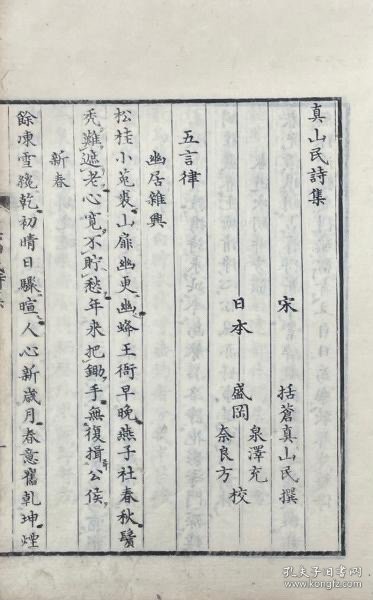 真山民詩集
宋 括蒼真山民撰
日本 盛岡 泉澤充 奈良方 校
五言律
幽居雜興
松桂小菟裘山扉幽更幽蜂王衙早晚燕子社春秋鬢
禿難遮老心寬不貯愁年来把鋤手無復揖公侯
新春
餘凍雪纔乾初晴日驟暄人心新歲月春意舊乾坤煙
孔夫子旧书网